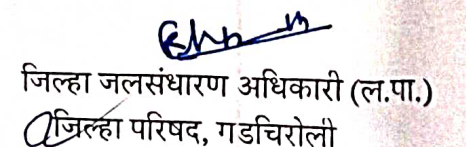 जिल्हा जलसंधारण अधिकारी (ल.पा.)
जिल्हा परिषद, गडचिरोली